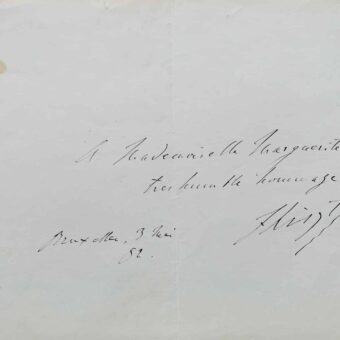 A Mademoiselle Marguerite
très humble hommage
FLiszt
Bruxelles, 3 Mai
82.